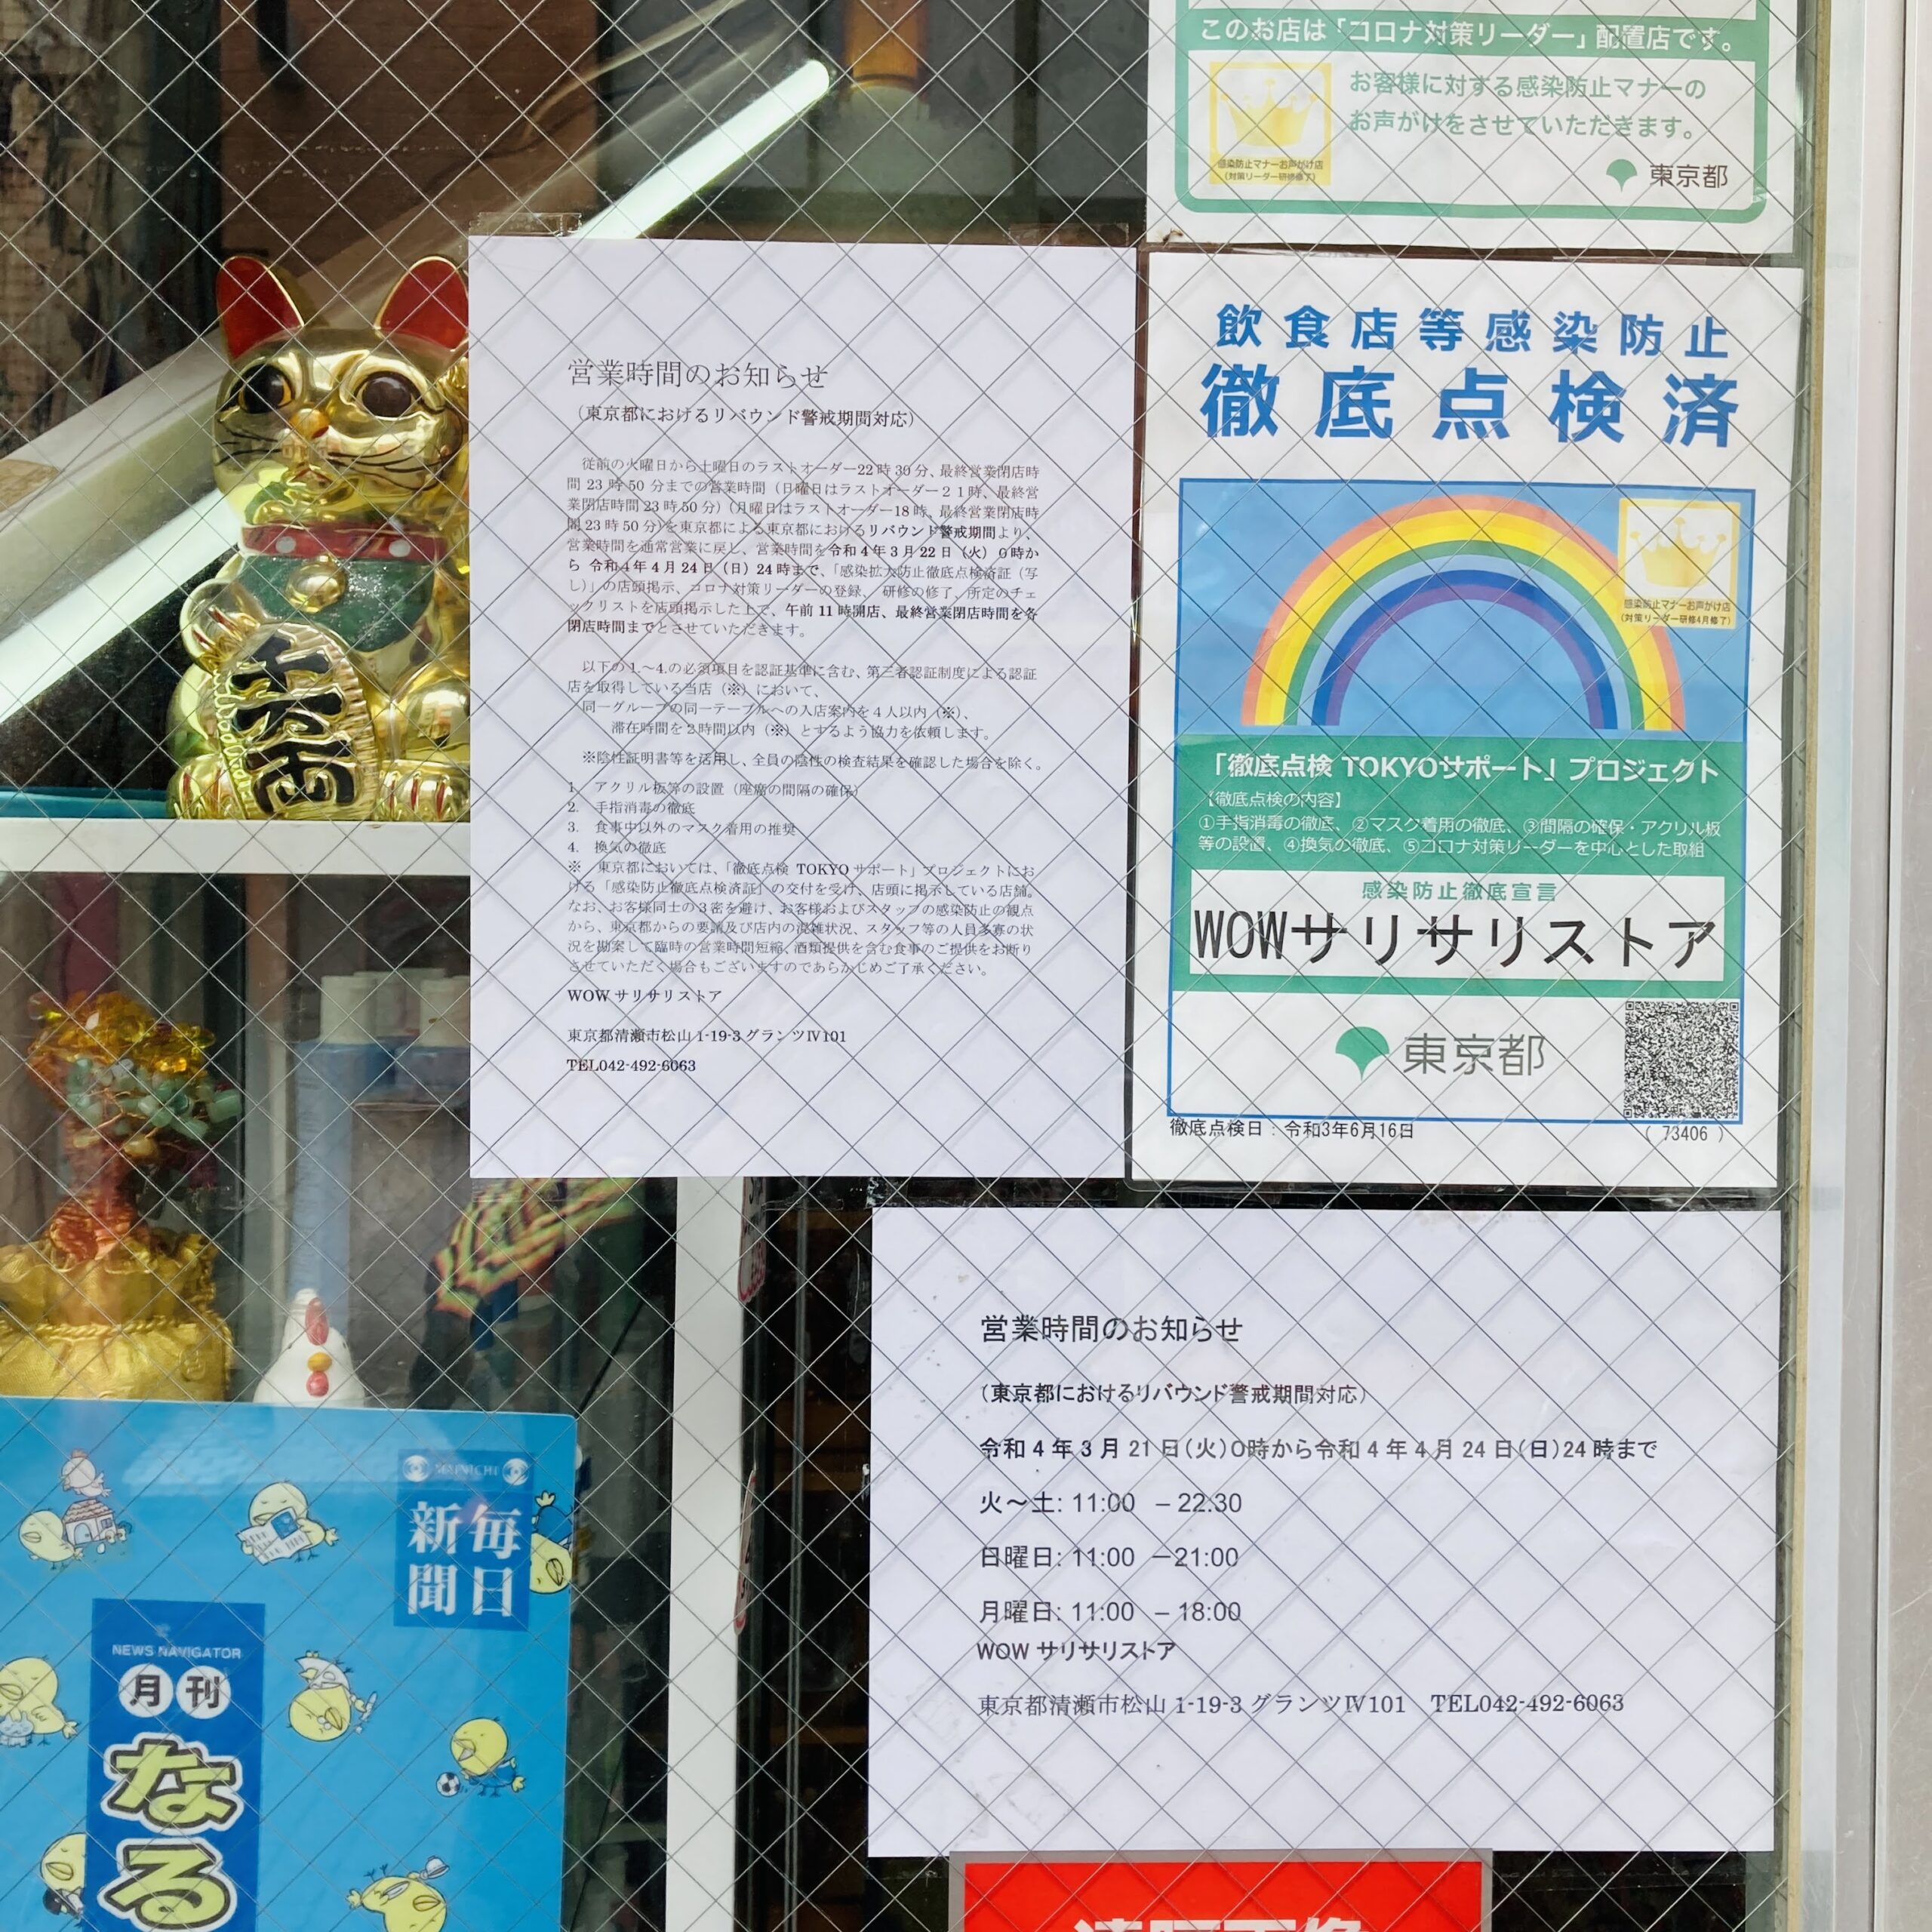 このお店は「コロナ対策リーダー」配置店です。
お客様に対する感染防止マナーの
お声がけをさせていただきます。
感染防止マナーお声がけ店
(対策リーダー研修修了)
東京都
営業時間のお知らせ
（東京都におけるリバウンド警戒期間対応）
従前の火曜日から土曜日のラストオーダー22時30分、最終営業閉店時
間 23 時 50 分までの営業時間（日曜日はラストオーダー２１時、最終営
業閉店時間 23 時 50 分）（月曜日はラストオーダー18 時、最終営業閉店時
間 23 時 50 分)を東京都による東京都におけるリバウンド警戒期間より、
営業時間を通常営業に戻し、営業時間を令和 4 年 3 月 22 日（火）０時か
ら 令和 4 年 4 月 24 日（日）24 時まで、「感染拡大防止徹底点検済証（写
し）」の店頭掲示、コロナ対策リーダーの登録、 研修の修了、所定のチェ
ックリストを店頭掲示した上で、午前 11 時開店、最終営業閉店時間を各
閉店時間までとさせていただきます。
以下の 1.～4.の必須項目を認証基準に含む、第三者認証制度による認証
店を取得している当店（※）において、
同一グループの同一テーブルへの入店案内を 4 人以内（※）、
滞在時間を 2 時間以内（※）とするよう協力を依頼します。
※陰性証明書等を活用し、全員の陰性の検査結果を確認した場合を除く。
1. アクリル板等の設置（座席の間隔の確保）
2. 手指消毒の徹底
3. 食事中以外のマスク着用の推奨
4. 換気の徹底
※ 東京都においては、「徹底点検 TOKYO サポート」プロジェクトにお
ける「感染防止徹底点検済証」の交付を受け、店頭に掲示している店舗。
なお、お客様同士の 3 密を避け、お客様およびスタッフの感染防止の観点
から、東京都からの要請及び店内の混雑状況、スタッフ等の人員多寡の状
況を勘案して臨時の営業時間短縮、酒類提供を含む食事のご提供をお断り
させていただく場合もございますのであらかじめご了承ください。
WOW サリサリストア
東京都清瀬市松山 1-19-3 グランツⅣ101
TEL042-492-6063
飲食店等感染防止
徹底点検済
感染防止マナーお声がけ店
(対策リーダー研修4月修了)
「徹底点検 TOKYOサポート」プロジェクト
【徹底点検の内容】
①手指消毒の徹底、②マスク着用の徹底、③間隔の確保・アクリル板
等の設置、④換気の徹底、⑤コロナ対策リーダーを中心とした取組
感染防止徹底宣言
WOWサリサリストア
東京都
徹底点検日：令和3年6月16日
( 73406 )
営業時間のお知らせ
（東京都におけるリバウンド警戒期間対応）
令和 4 年 3 月 21 日(火)0時から令和 4 年 4 月 24 日(日)24 時まで
火～土: 11:00 －22:30
日曜日: 11:00 －21:00
月曜日: 11:00 －18:00
WOW サリサリストア
東京都清瀬市松山 1-19-3 グランツⅣ101 TEL042-492-6063
千万両
MAINICHI
毎日
新聞
NEWS NAVIGATOR
月刊
なる